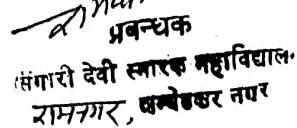 प्रबन्धक
सिंगारी देवी स्मारक महाविद्याल.
रामनगर, अम्बेडकर नगर